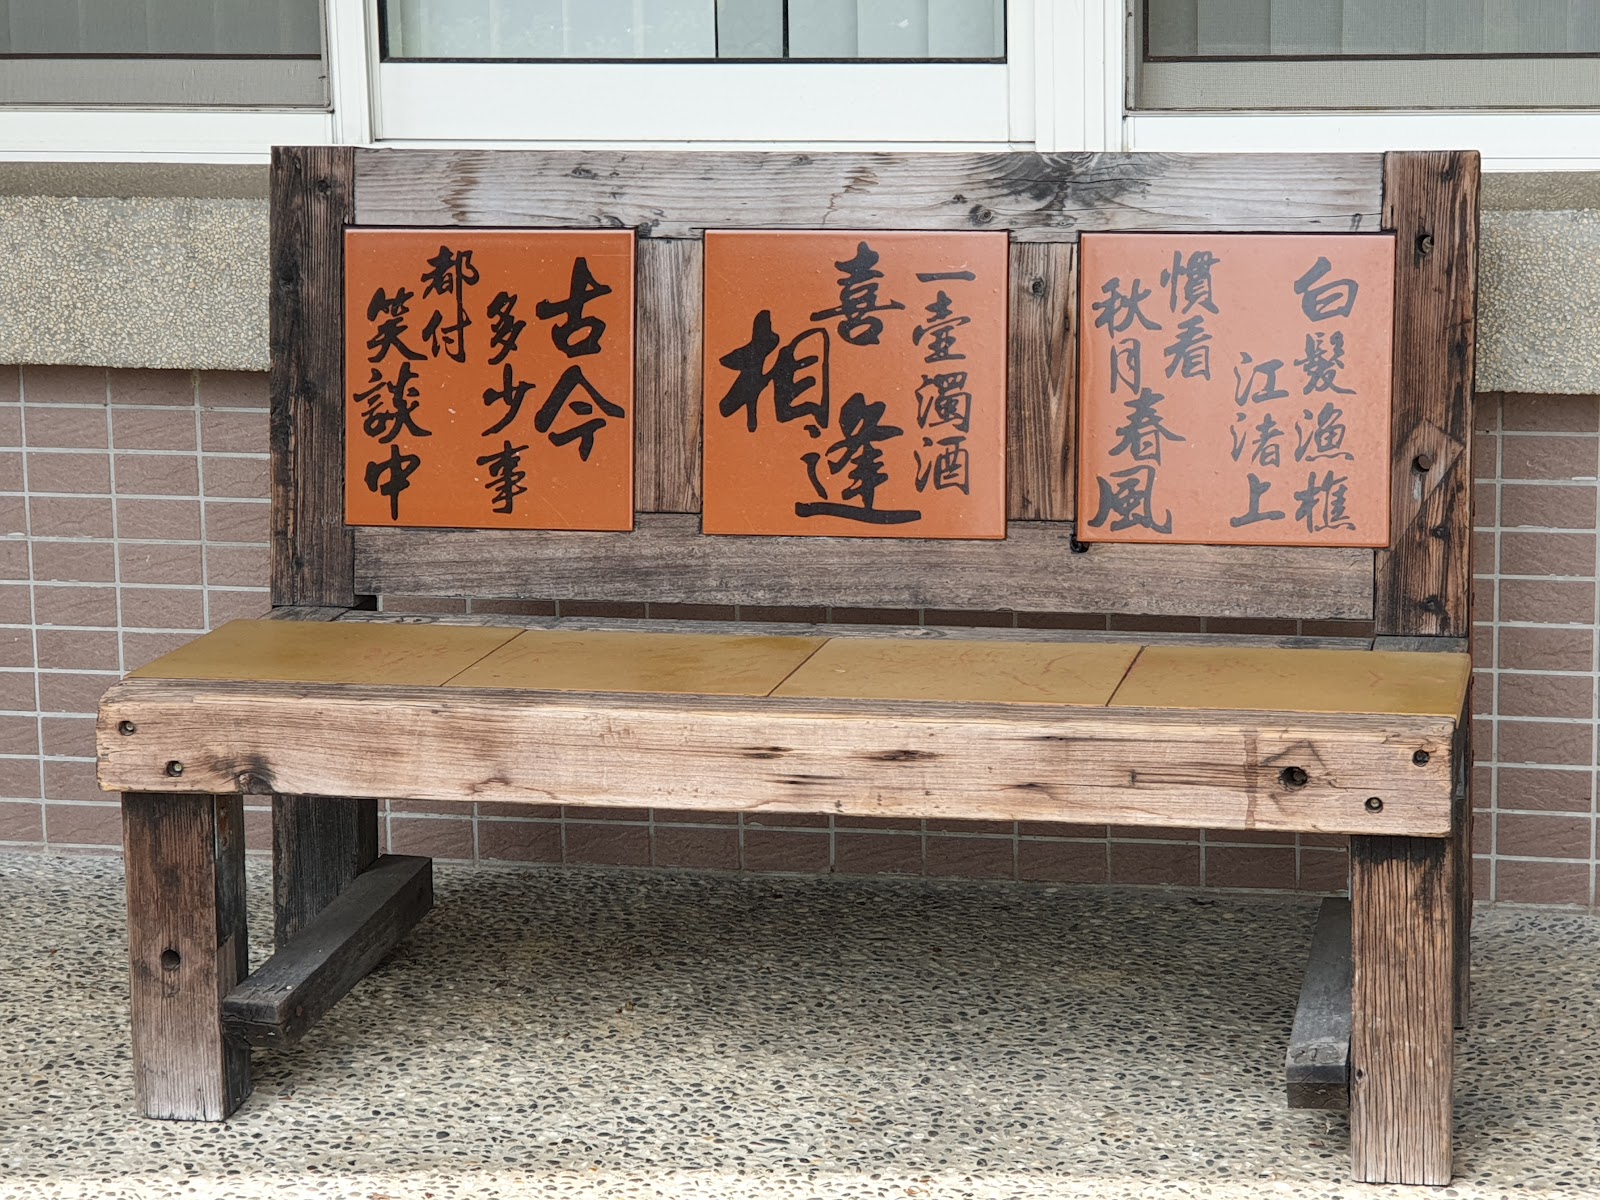 白髮漁樵
江渚上
慣看
秋月春風
一壺濁酒
喜
相逢
古今
多少事
都付
笑談中